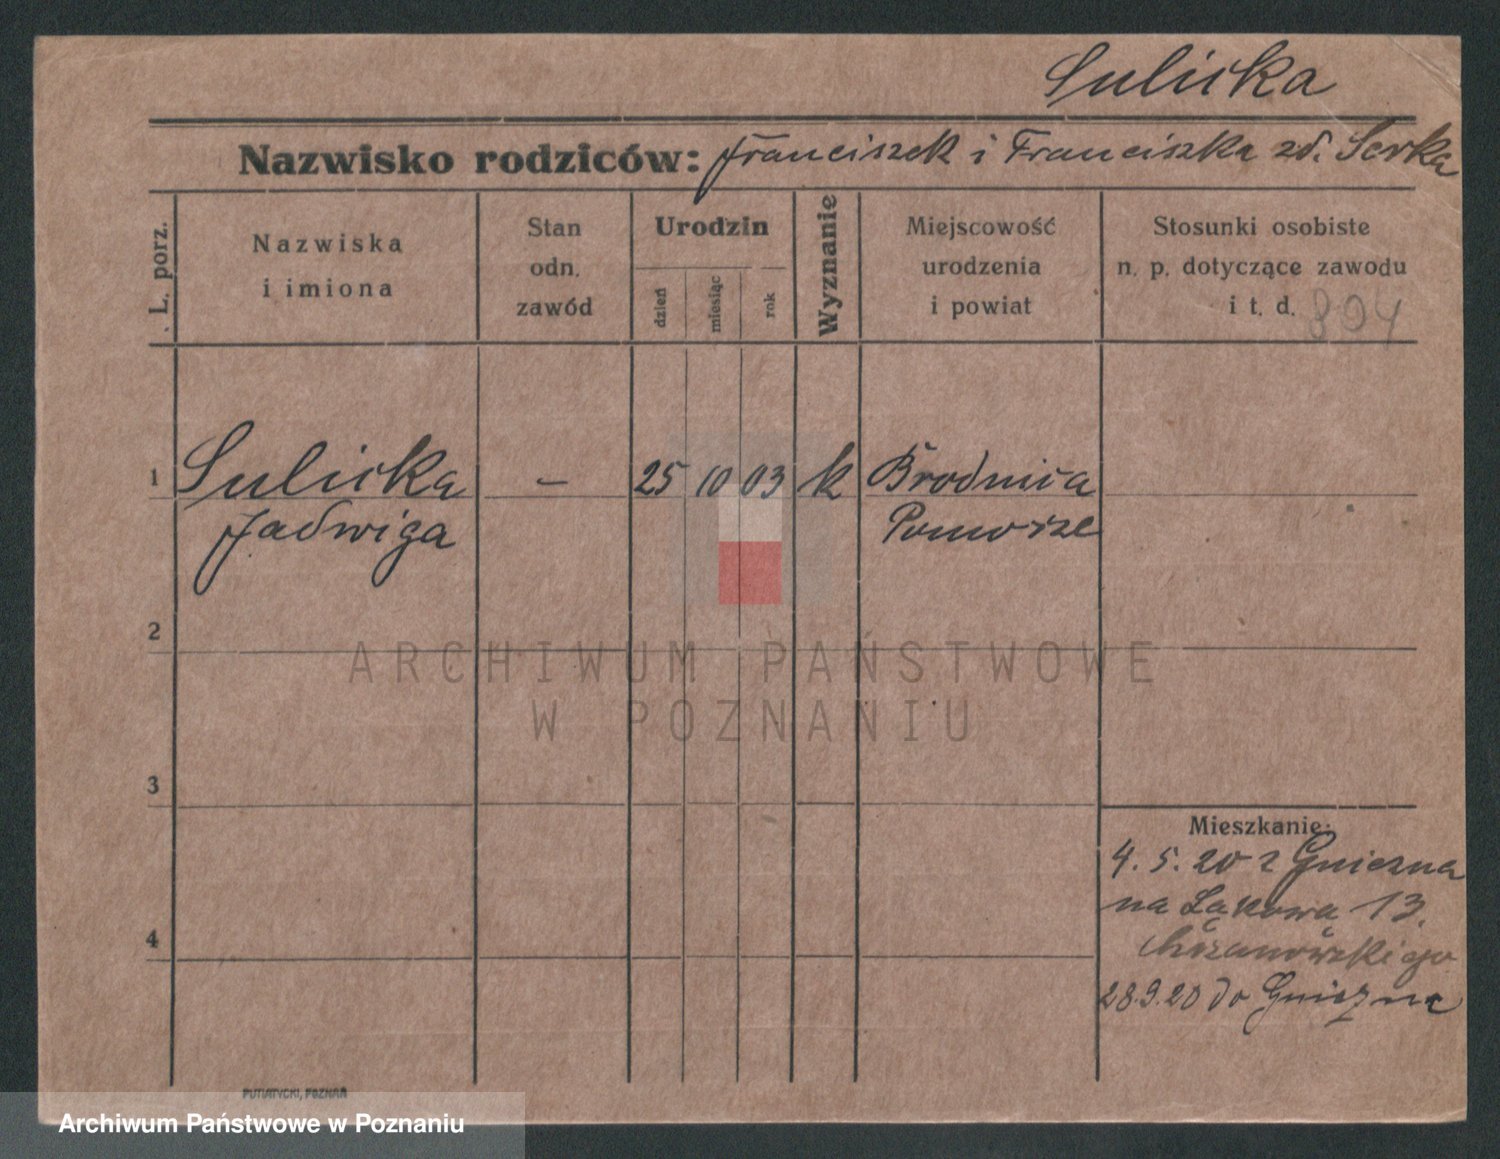 Sulicka
Nazwisko rodziców: Franciszek i Franciszka zd. Serka
L. porz.
Nazwiska
i imiona
Stan
odn.
zawód
Urodzin
dzień
miesiąc
rok
Wyznanie
Miejscowość
urodzenia
i powiat
Stosunki osobiste
n. p. dotyczące zawodu
i t. d. 894
1 Sulicka – 25 10 03 k Brodnica
Jadwiga Pomorze
2
ARCHIWUM PAŃSTWOWE
W POZNANIU
3
Mieszkanie:
4. 5. 20 z Gniezna
na Łąkową 13.
4
28.9.20 do Gniezna
PUTIATYCKI, POZNAŃ
Archiwum Państwowe w Poznaniu